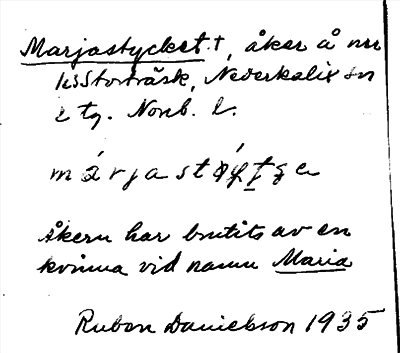 Marjastycket †, åker å nr
Storträsk, Nederkalix sn
o tg. Norrb. l.
Åkern har brutits av en
kvinna vid namn Maria
Ruben Danielsson 1935